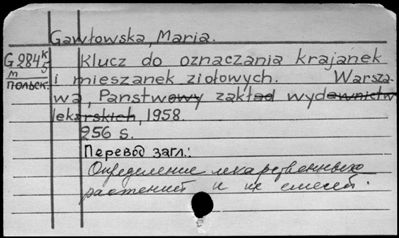 Gawłowska, Maria.
G 284 K/5 Klucz do oznaczania krajanek
м i mieszanek ziołowych. Warsza-
польск. wa, Państwowy zakład wydawnictw
lekarskich, 1958.
256 s.
Перевод загл.:
Определение лекарственных
растений и их смесей.